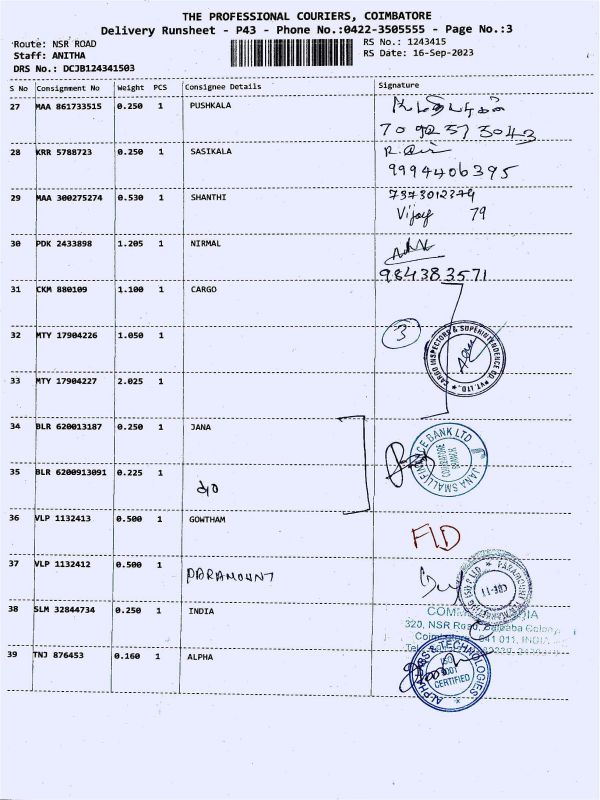 THE PROFESSIONAL COURIERS, COIMBATORE
Delivery Runsheet - P43 - Phone No.:0422-3505555 - Page No.:3
Route: NSR ROAD RS No.: 1243415
Staff: ANITHA RS Date: 16-Sep-2023
DRS No.: DCJB124341503
S No Consignment No Weight PCS Consignee Details Signature
27 MAA 861733515 0.250 1 PUSHKALA
709257 3043
28 KRR 5788723 0.250 1 SASIKALA
9994406395
29 MAA 300275274 0.530 1 SHANTHI 7373012379
Vijay 79
30 PDK 2433898 1.205 1 NIRMAL
984383571
31 CKM 880109 1.100 1 CARGO
32 MTY 17904226 1.050 1 3
CARGO INSPECTORS & SUPERINTENDENCE CO. PVT. LTD.,
33 MTY 17904227 2.025 1
34 BLR 620013187 0.250 1 JANA
JANA SMALL FINANCE BANK LTD
COIMBATORE BRANCH
35 BLR 6200913091 0.225 1
36 VLP 1132413 0.500 1 GOWTHAM
F/D
37 VLP 1132412 0.500 1
PARAMOUNT
CBE-11
38 SLM 32844734 0.250 1 INDIA
320, NSR Road, Saibaba Colony,
Coimbatore 641 011, INDIA
39 TNJ 876453 0.160 1 ALPHA
ALPHA LABS & TECHNOLOGIES
ISO 9001 CERTIFIED